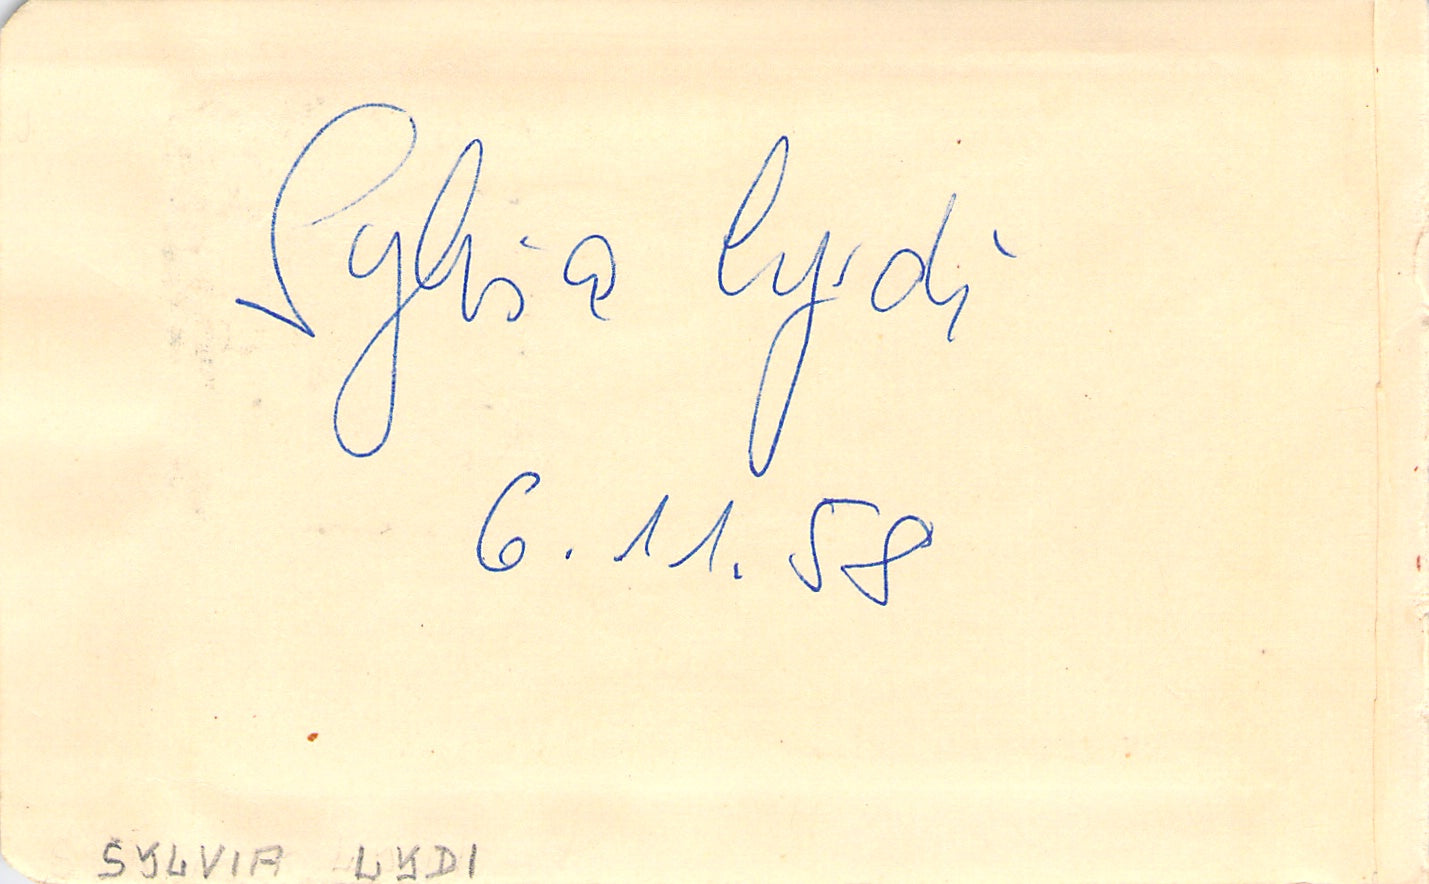 Sylvia Lydi
6.11.58
SYLVIA LYDI